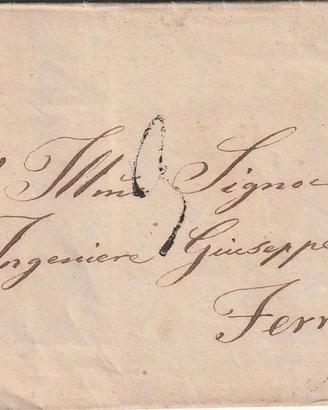 Illmo Signor
Ingeniere Giuseppe
Ferr